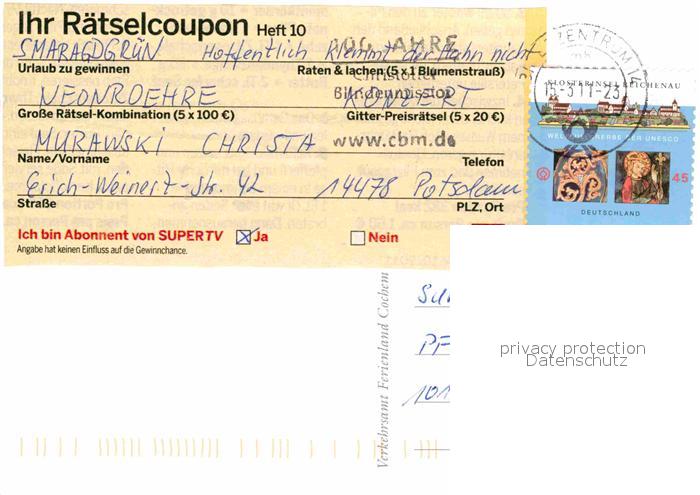 Ihr Rätselcoupon Heft 10
100 JAHRE
SMARAGDGRÜN Hoffentlich klemmt der Hahn nicht
Urlaub zu gewinnen Raten & lachen (5 x 1 Blumenstrauß)
Christoffel
Blindenmission
NEONROEHRE KONZERT
Große Rätsel-Kombination (5 x 100 €) Gitter-Preisrätsel (5 x 20 €)
MURAWSKI CHRISTA www.cbm.de
Name/Vorname Telefon
Erich-Weinert-Str. 42 14478 Potsdam
Straße PLZ, Ort
Ich bin Abonnent von SUPERTV Ja Nein
Angabe hat keinen Einfluss auf die Gewinnchance.
ZENTRUM
KLOSTERINSEL REICHENAU
15-3 11-23
WELTKULTURERBE DER UNESCO
45
DEUTSCHLAND
Verkehrsamt Ferienland Cochem
PF
101
privacy protection
Datenschutz